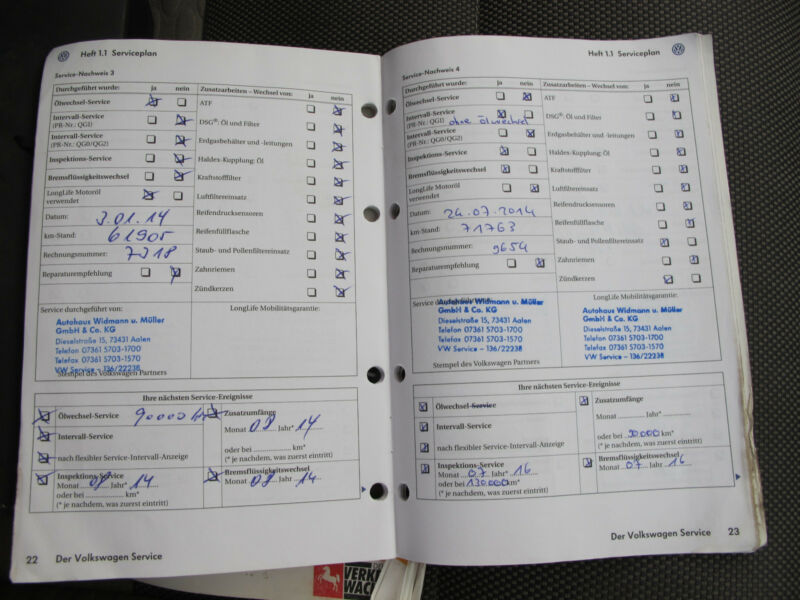 Heft 1.1 Serviceplan
Service-Nachweis 3
Durchgeführt wurde: ja nein
Ölwechsel-Service
Intervall-Service
(PR-Nr.: QG1)
Intervall-Service
(PR-Nr.: QG0/QG2)
Inspektions-Service
Bremsflüssigkeitswechsel
LongLife Motoröl
verwendet
Datum: 3.01.14
km-Stand: 61905
Rechnungsnummer: 7218
Reparaturempfehlung
Zusatzarbeiten – Wechsel von: ja nein
ATF
DSG®: Öl und Filter
Erdgasbehälter und -leitungen
Haldex-Kupplung: Öl
Kraftstofffilter
Luftfiltereinsatz
Reifendrucksensoren
Reifenfüllflasche
Staub- und Pollenfiltereinsatz
Zahnriemen
Zündkerzen
Service durchgeführt von:
Autohaus Widmann u. Müller
GmbH & Co. KG
Dieselstraße 15, 73431 Aalen
Telefon 07361 5703-1700
Telefax 07361 5703-1570
VW Service – 136/22238
Stempel des Volkswagen Partners
LongLife Mobilitätsgarantie:
Ihre nächsten Service-Ereignisse
Ölwechsel-Service 90000 km
Intervall-Service
nach flexibler Service-Intervall-Anzeige
Inspektions-Service
Monat 08 Jahr* 14
oder bei km*
(* je nachdem, was zuerst eintritt)
Zusatzumfänge
Monat 08 Jahr* 14
oder bei km*
(* je nachdem, was zuerst eintritt)
Bremsflüssigkeitswechsel
Monat 08 Jahr 14
22 Der Volkswagen Service
Heft 1.1 Serviceplan
Service-Nachweis 4
Durchgeführt wurde: ja nein
Ölwechsel-Service
Intervall-Service
(PR-Nr.: QG1) ohne Ölwechsel
Intervall-Service
(PR-Nr.: QG0/QG2)
Inspektions-Service
Bremsflüssigkeitswechsel
LongLife Motoröl
verwendet
Datum: 24.07.2014
km-Stand: 71763
Rechnungsnummer: 9654
Reparaturempfehlung
Zusatzarbeiten – Wechsel von: ja nein
ATF
DSG®: Öl und Filter
Erdgasbehälter und -leitungen
Haldex-Kupplung: Öl
Kraftstofffilter
Luftfiltereinsatz
Reifendrucksensoren
Reifenfüllflasche
Staub- und Pollenfiltereinsatz
Zahnriemen
Zündkerzen
Service durchgeführt von:
Autohaus Widmann u. Müller
GmbH & Co. KG
Dieselstraße 15, 73431 Aalen
Telefon 07361 5703-1700
Telefax 07361 5703-1570
VW Service – 136/22238
Stempel des Volkswagen Partners
LongLife Mobilitätsgarantie:
Autohaus Widmann u. Müller
GmbH & Co. KG
Dieselstraße 15, 73431 Aalen
Telefon 07361 5703-1700
Telefax 07361 5703-1570
VW Service – 136/22238
Ihre nächsten Service-Ereignisse
Ölwechsel-Service
Intervall-Service
nach flexibler Service-Intervall-Anzeige
Inspektions-Service
Monat 07 Jahr* 16
oder bei 130000 km*
(* je nachdem, was zuerst eintritt)
Zusatzumfänge
Monat Jahr*
oder bei 90000 km*
(* je nachdem, was zuerst eintritt)
Bremsflüssigkeitswechsel
Monat 07 Jahr 16
Der Volkswagen Service 23
VERKE
WAC